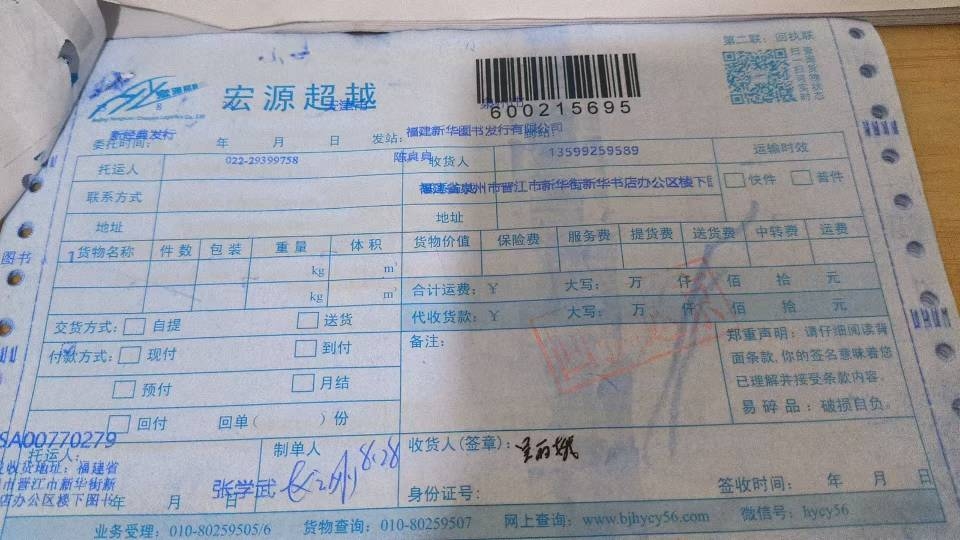 第二联：回执联
扫一扫实时
查询货物状态
宏源超越
600215695
新经典发行
福建新华图书发行有限公司
委托时间： 年 月 日 发站：
托运人 022-29399758 陈贞贞 收货人 13599259589 运输时效
联系方式 福建省泉州市晋江市新华街新华书店办公区楼下 快件 普件
地址 地址
图书 1 货物名称 件数 包装 重量 体积 货物价值 保险费 服务费 提货费 送货费 中转费 运费
kg m³
kg m³ 合计运费：￥ 大写： 万 仟 佰 拾 元
交货方式： 自提 送货 代收货款：￥ 大写： 万 仟 佰 拾 元
付款方式： 现付 到付 备注：
预付 月结
回付 回单( )份
郑重声明：请仔细阅读背
面条款，你的签名意味着您
已理解并接受条款内容。
易碎品：破损自负。
SA00770279
托运人：
收货地址：福建省
市晋江市新华街新
店办公区楼下图书
年 月 日
制单人
张学武 8.28
收货人(签章)：
身份证号：
签收时间： 年 月
业务受理：010-80259505/6 货物查询：010-80259507 网上查询：www.bjhycy56.com 微信号：hycy56